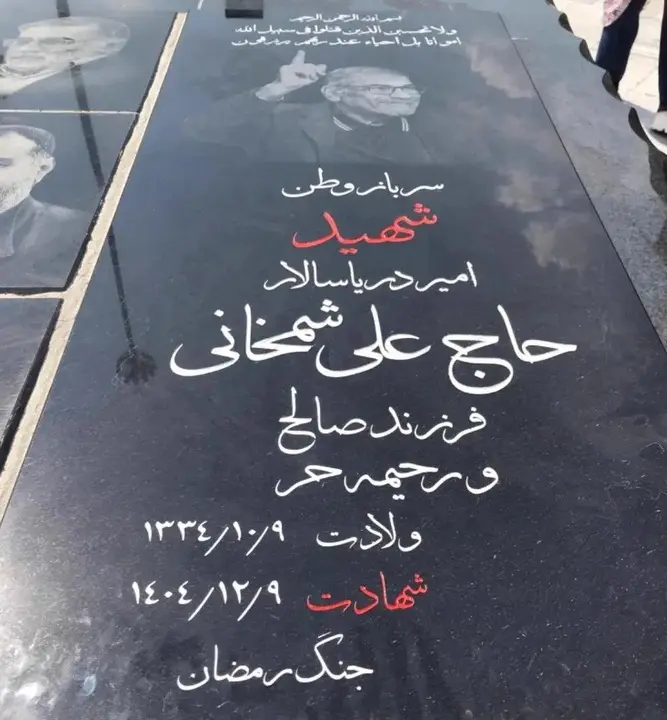 بسم الله الرحمن الرحیم
ولا تحسبن الذین قتلوا فی سبیل الله
امواتا بل احیاء عند ربهم یرزقون
سرباز وطن
شهید
امیر دریاسالار
حاج علی شمخانی
فرزند صالح
و رحیمه حر
ولادت ۱۳۳۴/۱۰/۹
شهادت ۱۴۰۴/۱۲/۹
جنگ رمضان